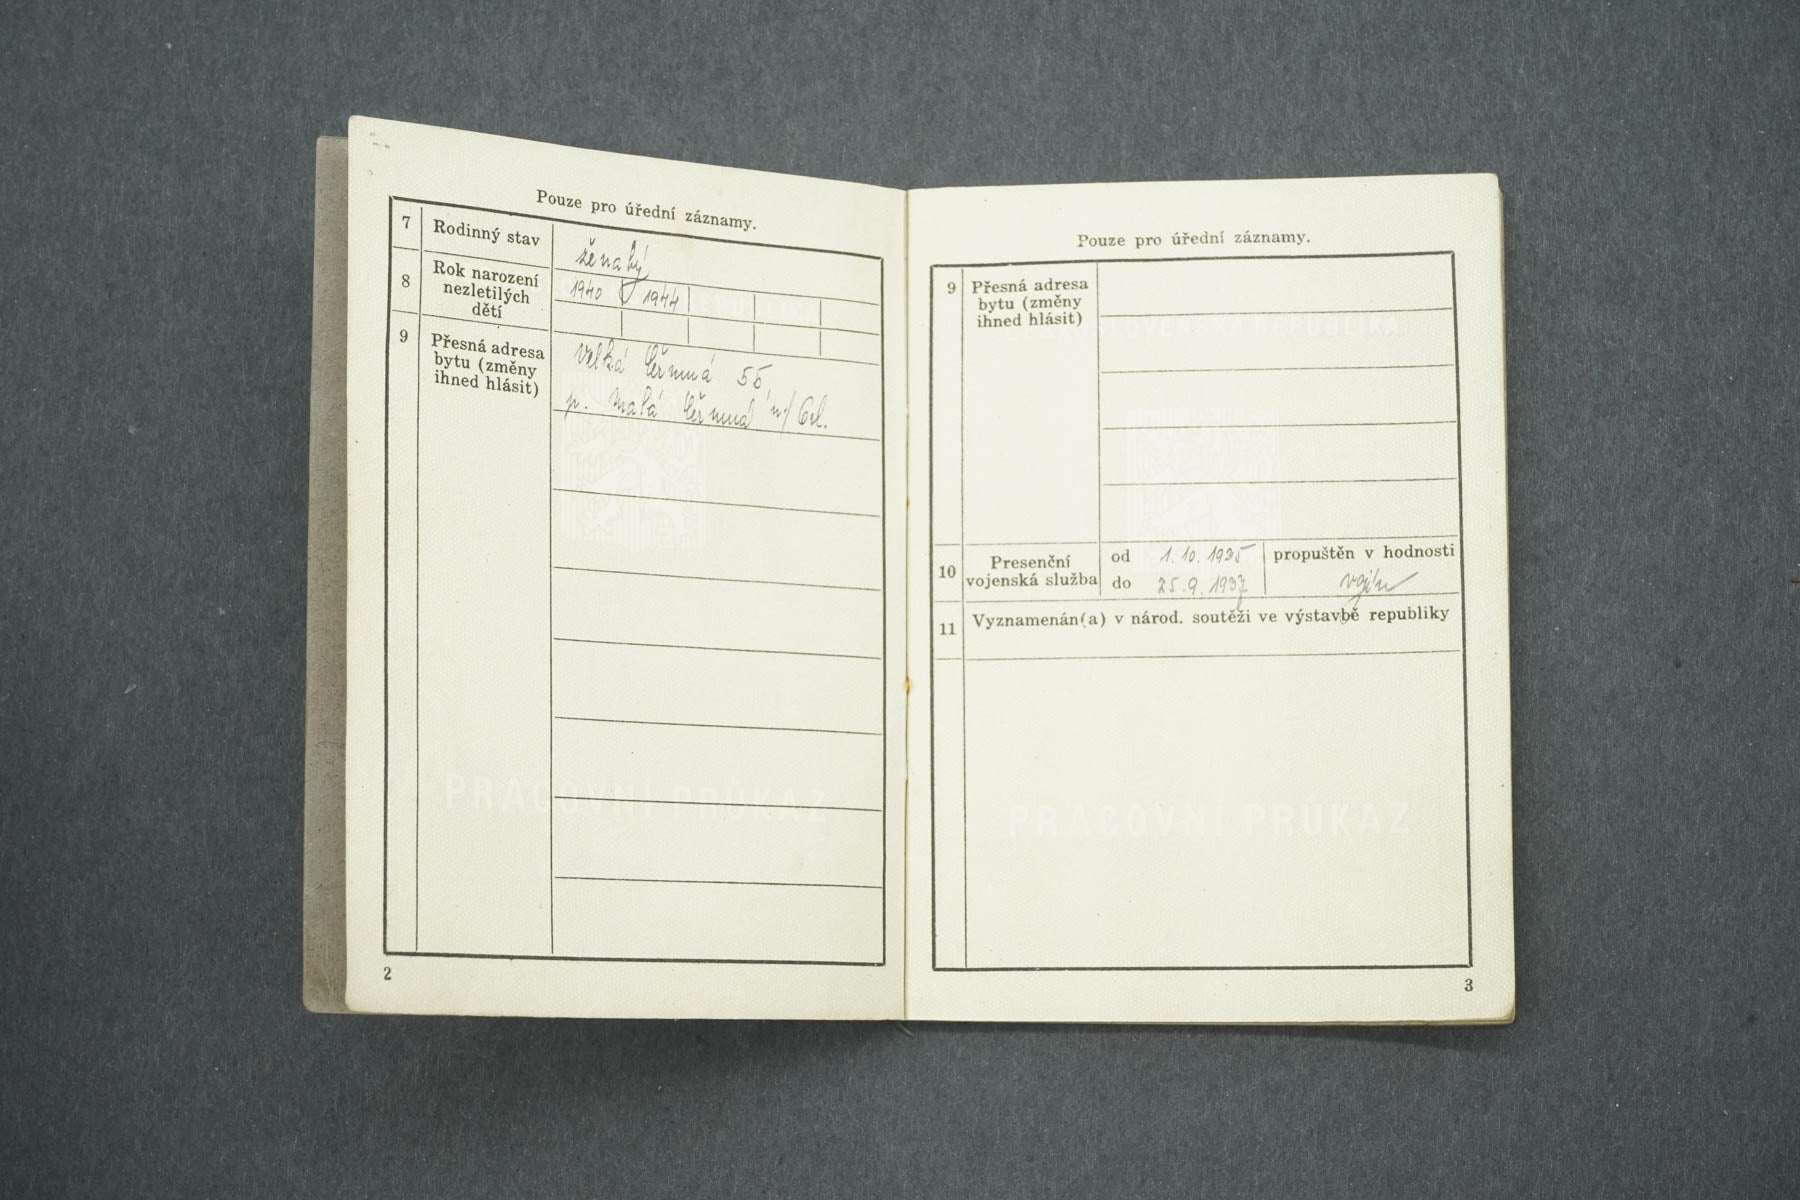 Pouze pro úřední záznamy.
7 Rodinný stav ženatý
8 Rok narození nezletilých dětí 1940 1944
9 Přesná adresa bytu (změny ihned hlásit)
Velká Čermná 55,
p. Malá Čermná n/Orl.
PRACOVNÍ PRŮKAZ
2
Pouze pro úřední záznamy.
9 Přesná adresa bytu (změny ihned hlásit)
REPUBLIKA
10 Presenční vojenská služba
od 1.10.1935 propuštěn v hodnosti
do 25.9.1937 vojín
11 Vyznamenán(a) v národ. soutěži ve výstavbě republiky
PRACOVNÍ PRŮKAZ
3